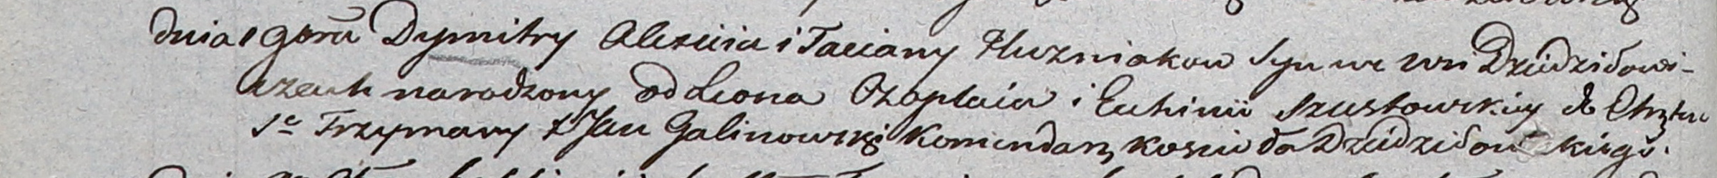 dnia 1 Gbra Dymitry Alexieia i Taciany Huzniakow Syn we wsi Dziedziłowi-
czach narodzony od Leona Czaplaia i Euhinii Szustowskiey do Chrztu
S° Trzymany X Jan Galinowski Komendarz Koscioła Dziedziłowickiego.